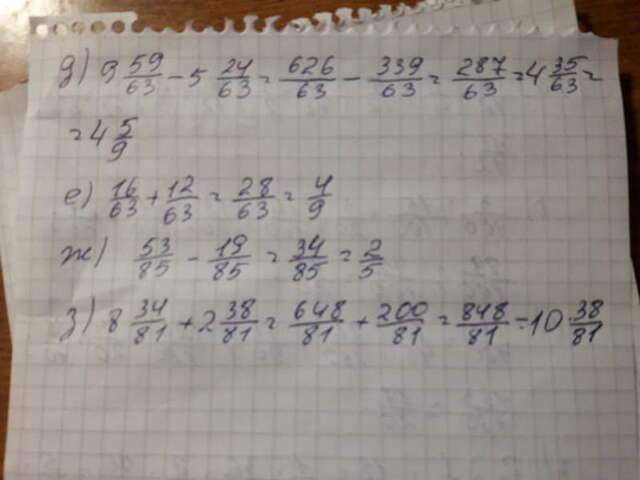 д) 9 59/63 - 5 24/63 = 626/63 - 339/63 = 287/63 = 4 35/63 =
= 4 5/9
е) 16/63 + 12/63 = 28/63 = 4/9
ж) 53/85 - 19/85 = 34/85 = 2/5
з) 8 34/81 + 2 38/81 = 648/81 + 200/81 = 848/81 = 10 38/81